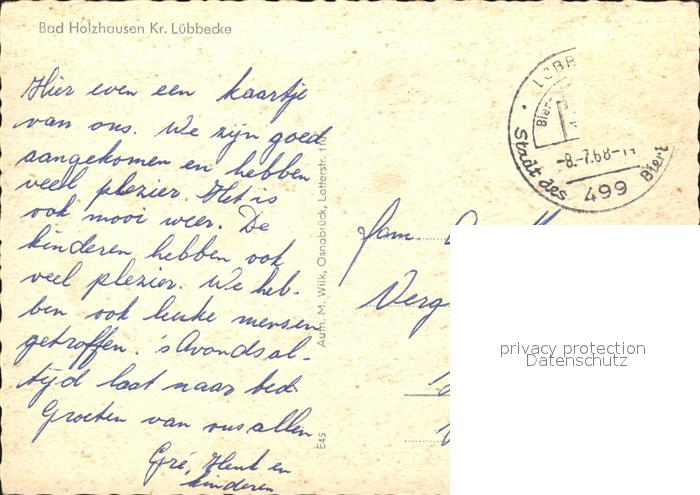 Bad Holzhausen Kr. Lübbecke
Hier even een kaartje
van ons. We zijn goed
aangekomen en hebben
veel plezier. Het is
ook mooi weer. De
kinderen hebben ook
veel plezier. We heb-
ben ook leuke mensen
getroffen. 's Avonds al-
tijd laat naar bed.
Groeten van ons allen
Gré, Henk en
kinderen
Aufn. M. Wilk, Osnabrück, Lotterstr.
E45
LÜBB
Bier-
-8.-7.68-11
Stadt des Bier
499
fam.
Verg
privacy protection
Datenschutz